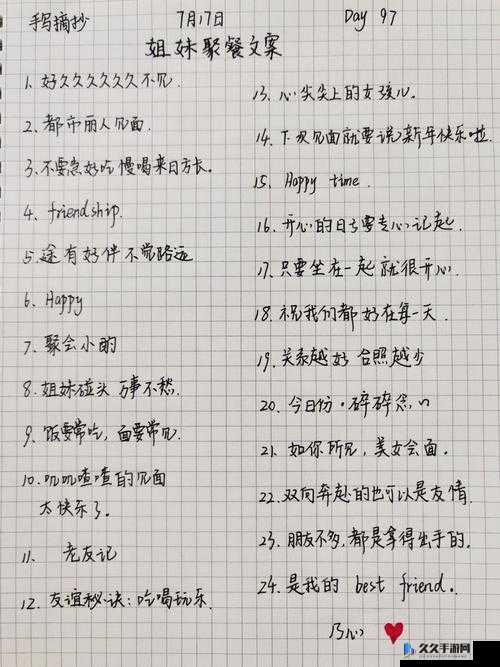 手写摘抄 7月17日 Day 97
姐妹聚餐文案
1. 好久久久久久不见.
2. 都市丽人见面.
3. 不要急好吃慢喝来日方长。
4. friendship.
5. 途有好伴 不觉路远
6. Happy
7. 聚会小的
8. 姐妹碰头 万事不愁.
9. 饭要常吃, 面要常见.
10. 叽叽喳喳的见面
太快乐了.
11. 老友记
12. 友谊秘诀:吃喝玩乐.
13. 心尖尖上的女孩儿.
14. 下次见面就要说新年快乐啦.
15. Happy time.
16. 开心的日子要专心记起.
17. 只要坐在一起 就很开心.
18. 祝我们都好在每一天.
19. 关系越好 合照越少
20. 今日份·碎碎念.
21. 如你所见, 美女会面.
22. 双向奔赴的也可以是友情.
23. 朋友不多, 都是拿得出手的.
24. 是我的 best friend.
乃心
久久手游网